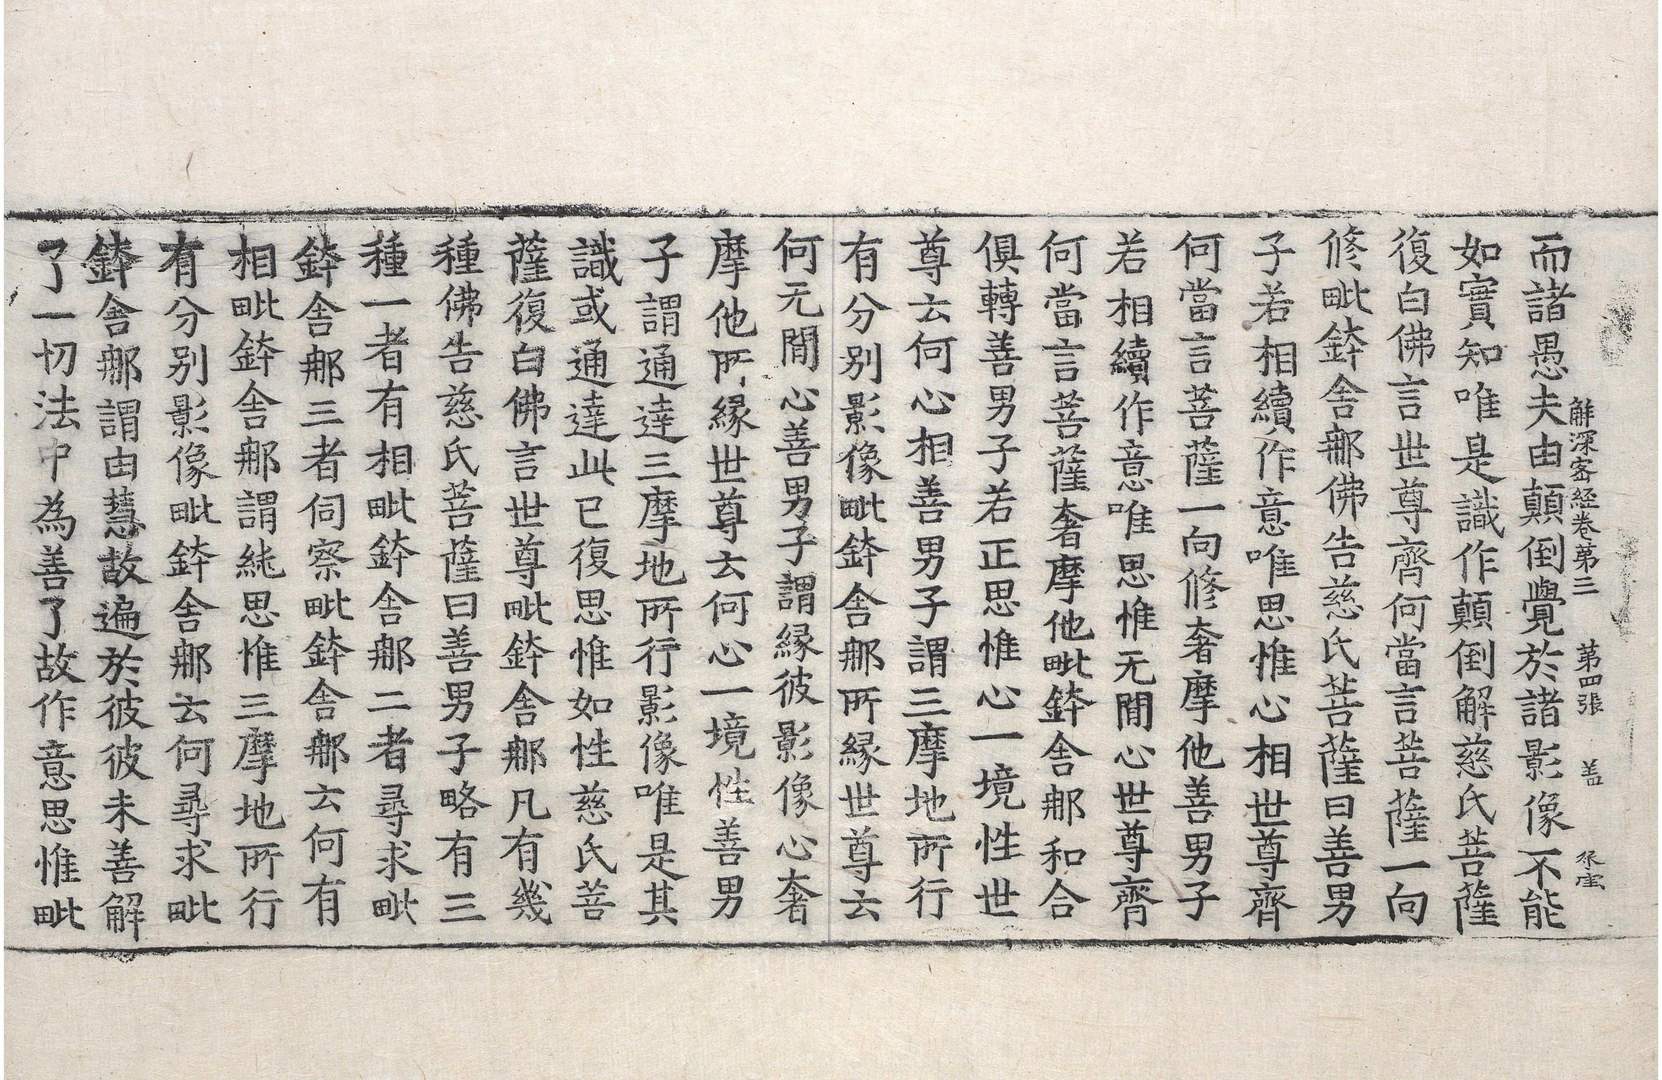 解深密經卷第三 第四張 盖
而諸愚夫由顛倒覺於諸影像不能
如實知唯是識作顛倒解慈氏菩薩
復白佛言世尊齊何當言菩薩一向
修毗鉢舍那佛告慈氏菩薩曰善男
子若相續作意唯思惟心相世尊齊
何當言菩薩一向修奢摩他善男子
若相續作意唯思惟无間心世尊齊
何當言菩薩奢摩他毗鉢舍那和合
俱轉善男子若正思惟心一境性世
尊云何心相善男子謂三摩地所行
有分別影像毗鉢舍那所緣世尊云
何无間心善男子謂緣彼影像心奢
摩他所緣世尊云何心一境性善男
子謂通達三摩地所行影像唯是其
識或通達此已復思惟如性慈氏菩
薩復白佛言世尊毗鉢舍那凡有幾
種佛告慈氏菩薩曰善男子略有三
種一者有相毗鉢舍那二者尋求毗
鉢舍那三者伺察毗鉢舍那云何有
相毗鉢舍那謂純思惟三摩地所行
有分別影像毗鉢舍那云何尋求毗
鉢舍那謂由慧故遍於彼彼未善解
了一切法中為善了故作意思惟毗